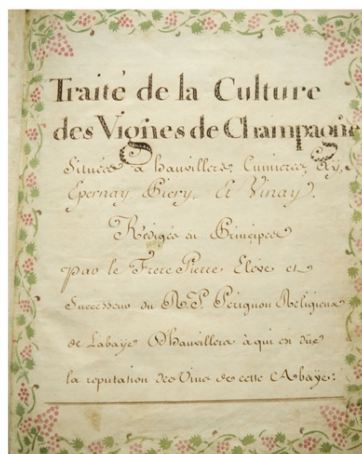 Traité de la Culture
des Vignes de Champagne
Situées à hauvillers, Cumieres, Ay,
Epernay Piery, Et Vinay.
Rédigés en Principes
par le Frere Pierre Eleve et
Successeur du R.P. Perignon Religieux
de Labaye Dhauvillers à qui on düe
la reputation des Vins de cette Abaÿe: